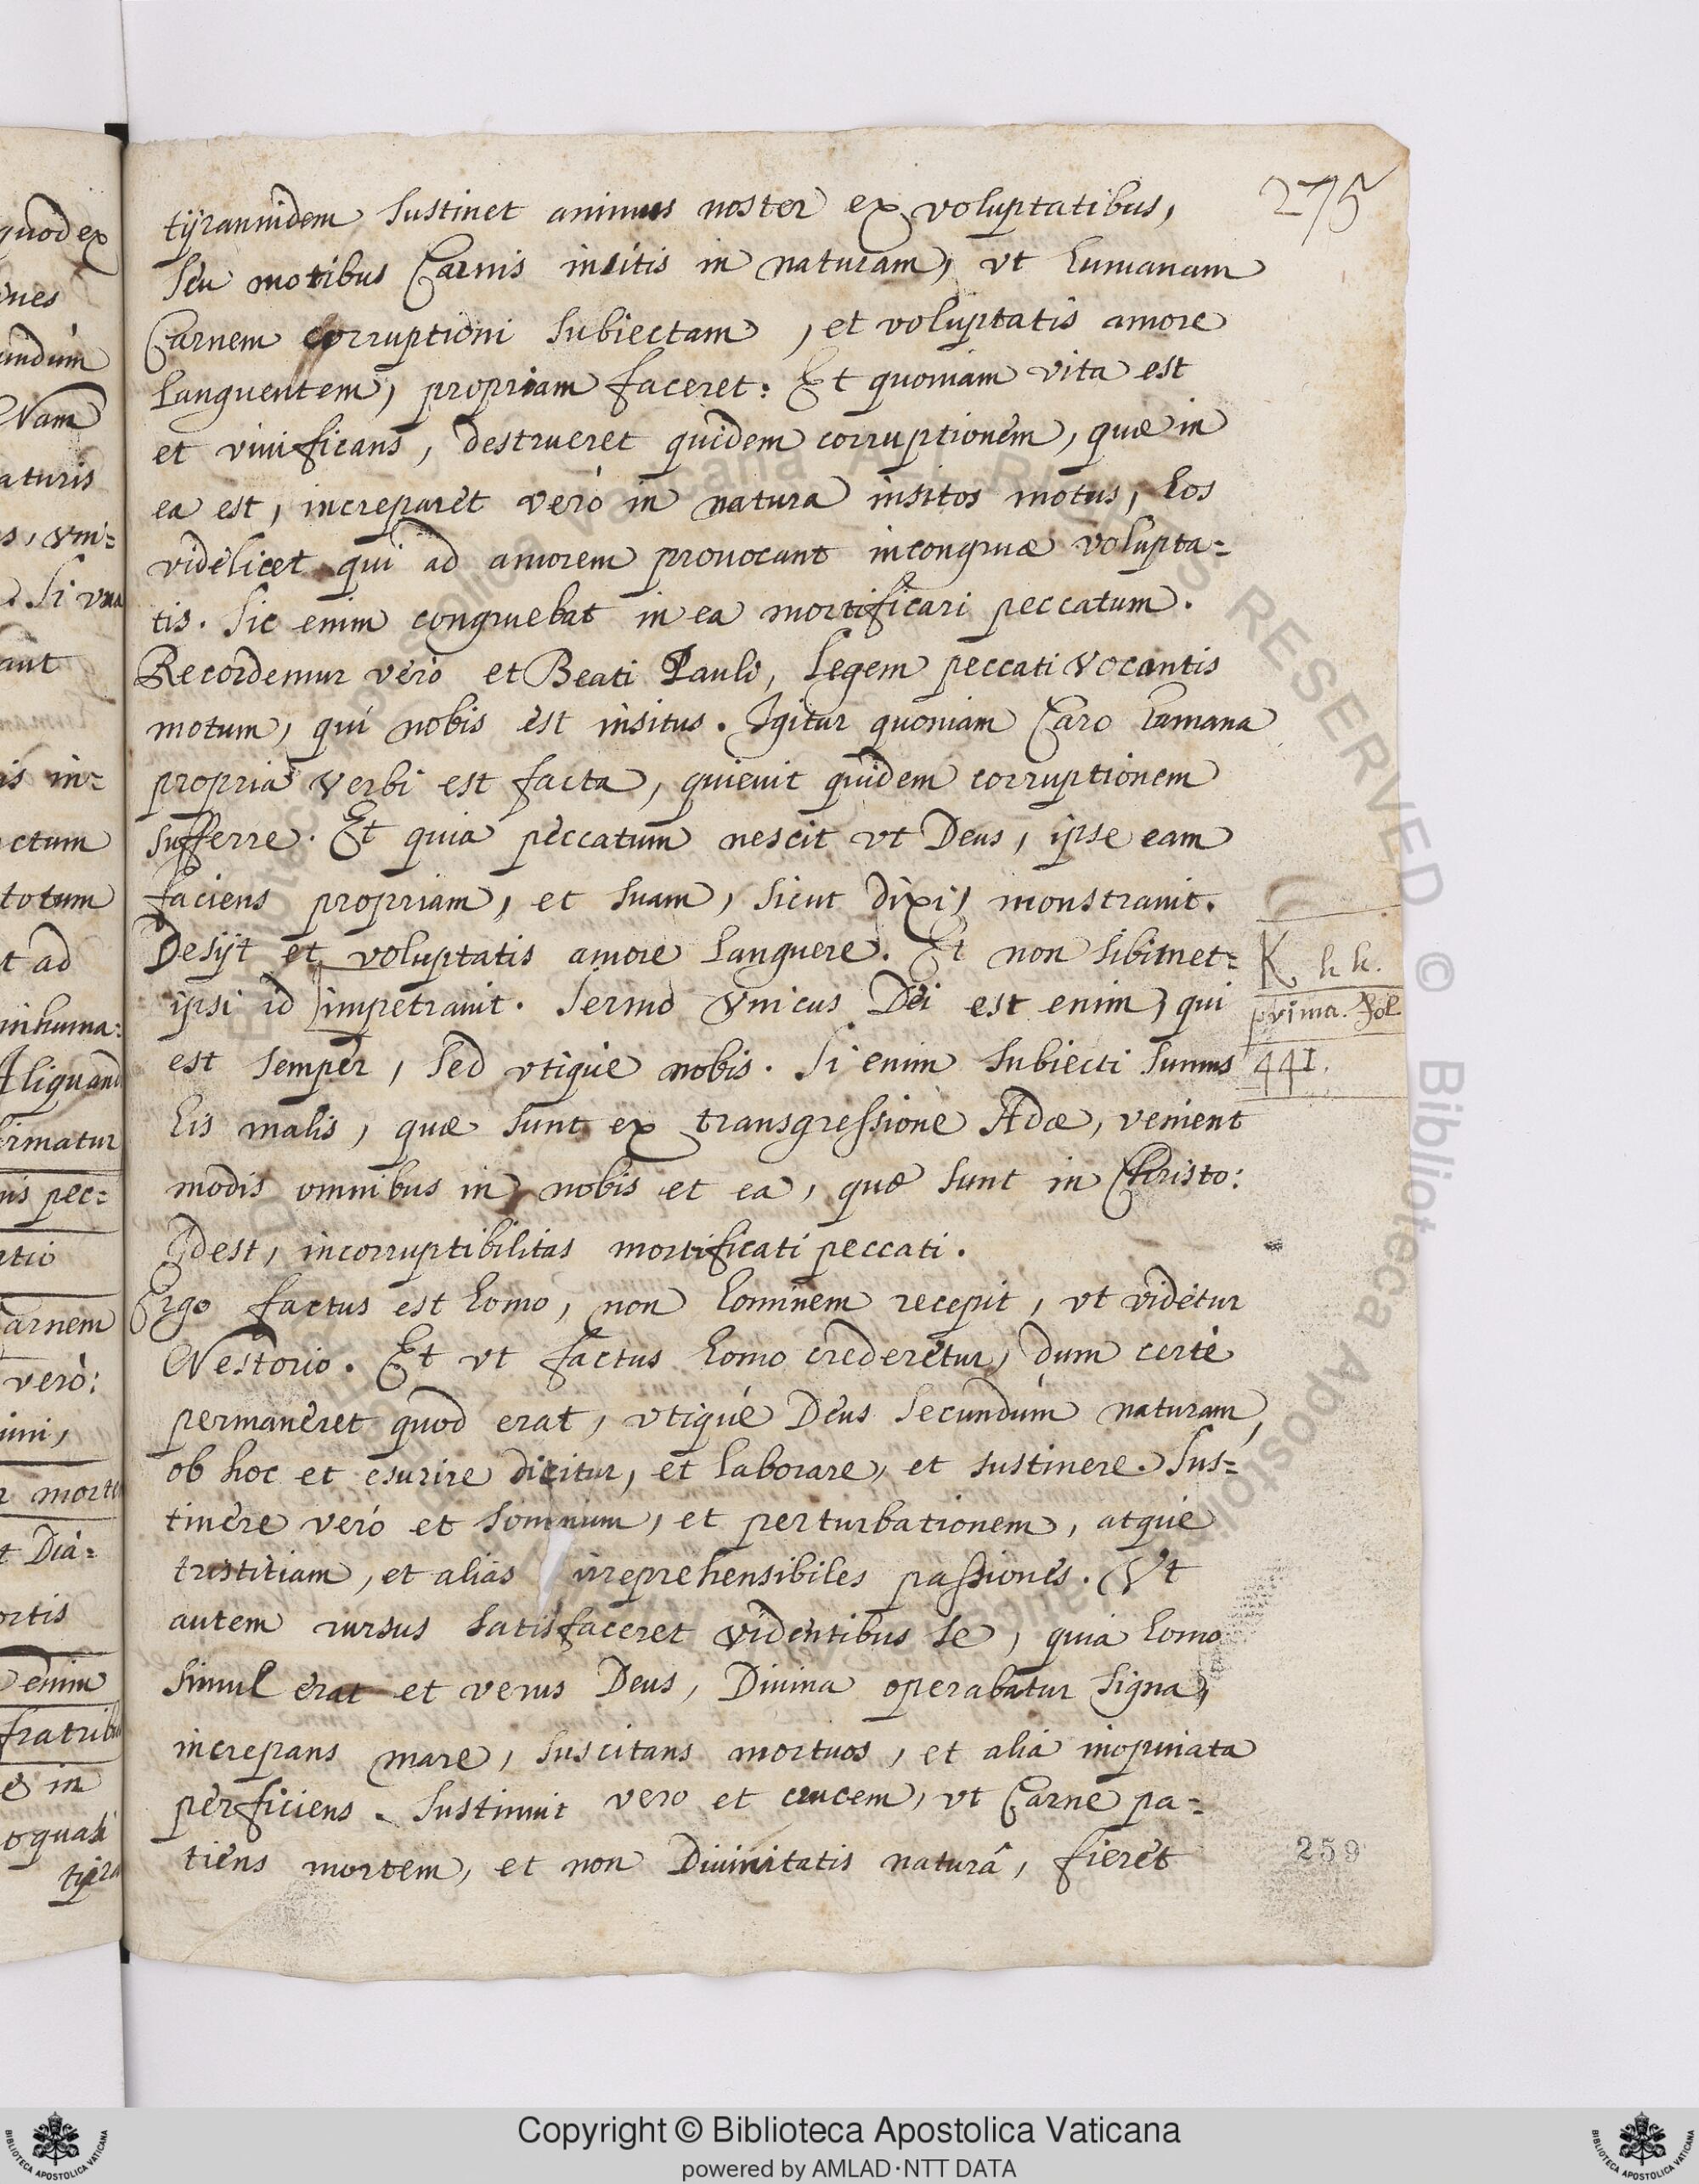 275
tÿrannidem sustinet animus noster ex voluptatibus,
seu motibus Carnis insitis in naturam, vt humanam
Carnem corruptioni subiectam, et voluptatis amore
languentem, propriam faceret: Et quoniam vita est
et viuificans, destrueret quidem corruptionem, quæ in
ea est, increparet verò in natura insitos motus, hos
videlicet qui ad amorem prouocant incongruæ volupta=
tis. Sic enim congruebat in ea mortificari peccatum.
Recordemur verò et Beati Pauli, Legem peccati vocantis
motum, qui nobis est insitus. Igitur quoniam Caro humana
propria Verbi est facta, quieuit quidem corruptionem
sufferre. Et quia peccatum nescit vt Deus, ipse eam
faciens propriam, et suam, sicut dixi, monstrauit.
Desijt et voluptatis amore languere. Et non sibimet=
ipsi id impetrauit. Sermo Vnicus Dei est enim, qui
est semper, sed vtique nobis. Si enim subiecti sumus
his malis, quæ sunt ex transgressione Adæ, venient
modis omnibus in nobis et ea, quæ sunt in Christo:
Idest, incorruptibilitas mortificati peccati.
Ergo factus est homo, non hominem recepit, vt videtur
Nestorio. Et vt factus homo crederetur, dum certè
permaneret quod erat, vtique Deus secundùm naturam,
ob hoc et esurire dicitur, et laborare, et sustinere. Sus=
tinere verò et somnum, et perturbationem, atque
tristitiam, et alias irreprehensibiles passiones. Vt
autem rursus satisfaceret videntibus se, quia homo
simul erat et verus Deus, Diuina operabatur signa,
increpans mare, suscitans mortuos, et alia inopinata
perficiens. Sustinuit vero et crucem, vt Carne pa=
tiens mortem, et non Diuinitatis naturâ, fieret
K h h.
prima. fol.
441.
259
quod ex
Nam
aturis
s, vni=
Si vna
aut
is in=
ctum
totum
t ad
inhuma:
Aliquand
firmatur
nis pec=
rtio
Carnem
verò:
r mortu
t Dia=
ortis
enim
fratrib
e in
o quasi
tÿra
Copyright © Biblioteca Apostolica Vaticana
powered by AMLAD·NTT DATA
BIBLIOTECA APOSTOLICA VATICANA
BIBLIOTECA APOSTOLICA VATICANA